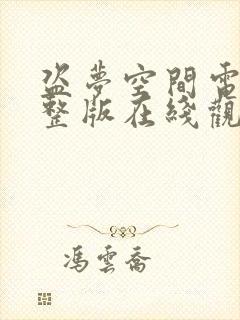 盗夢空間電
整版在綫觀
馮雲喬